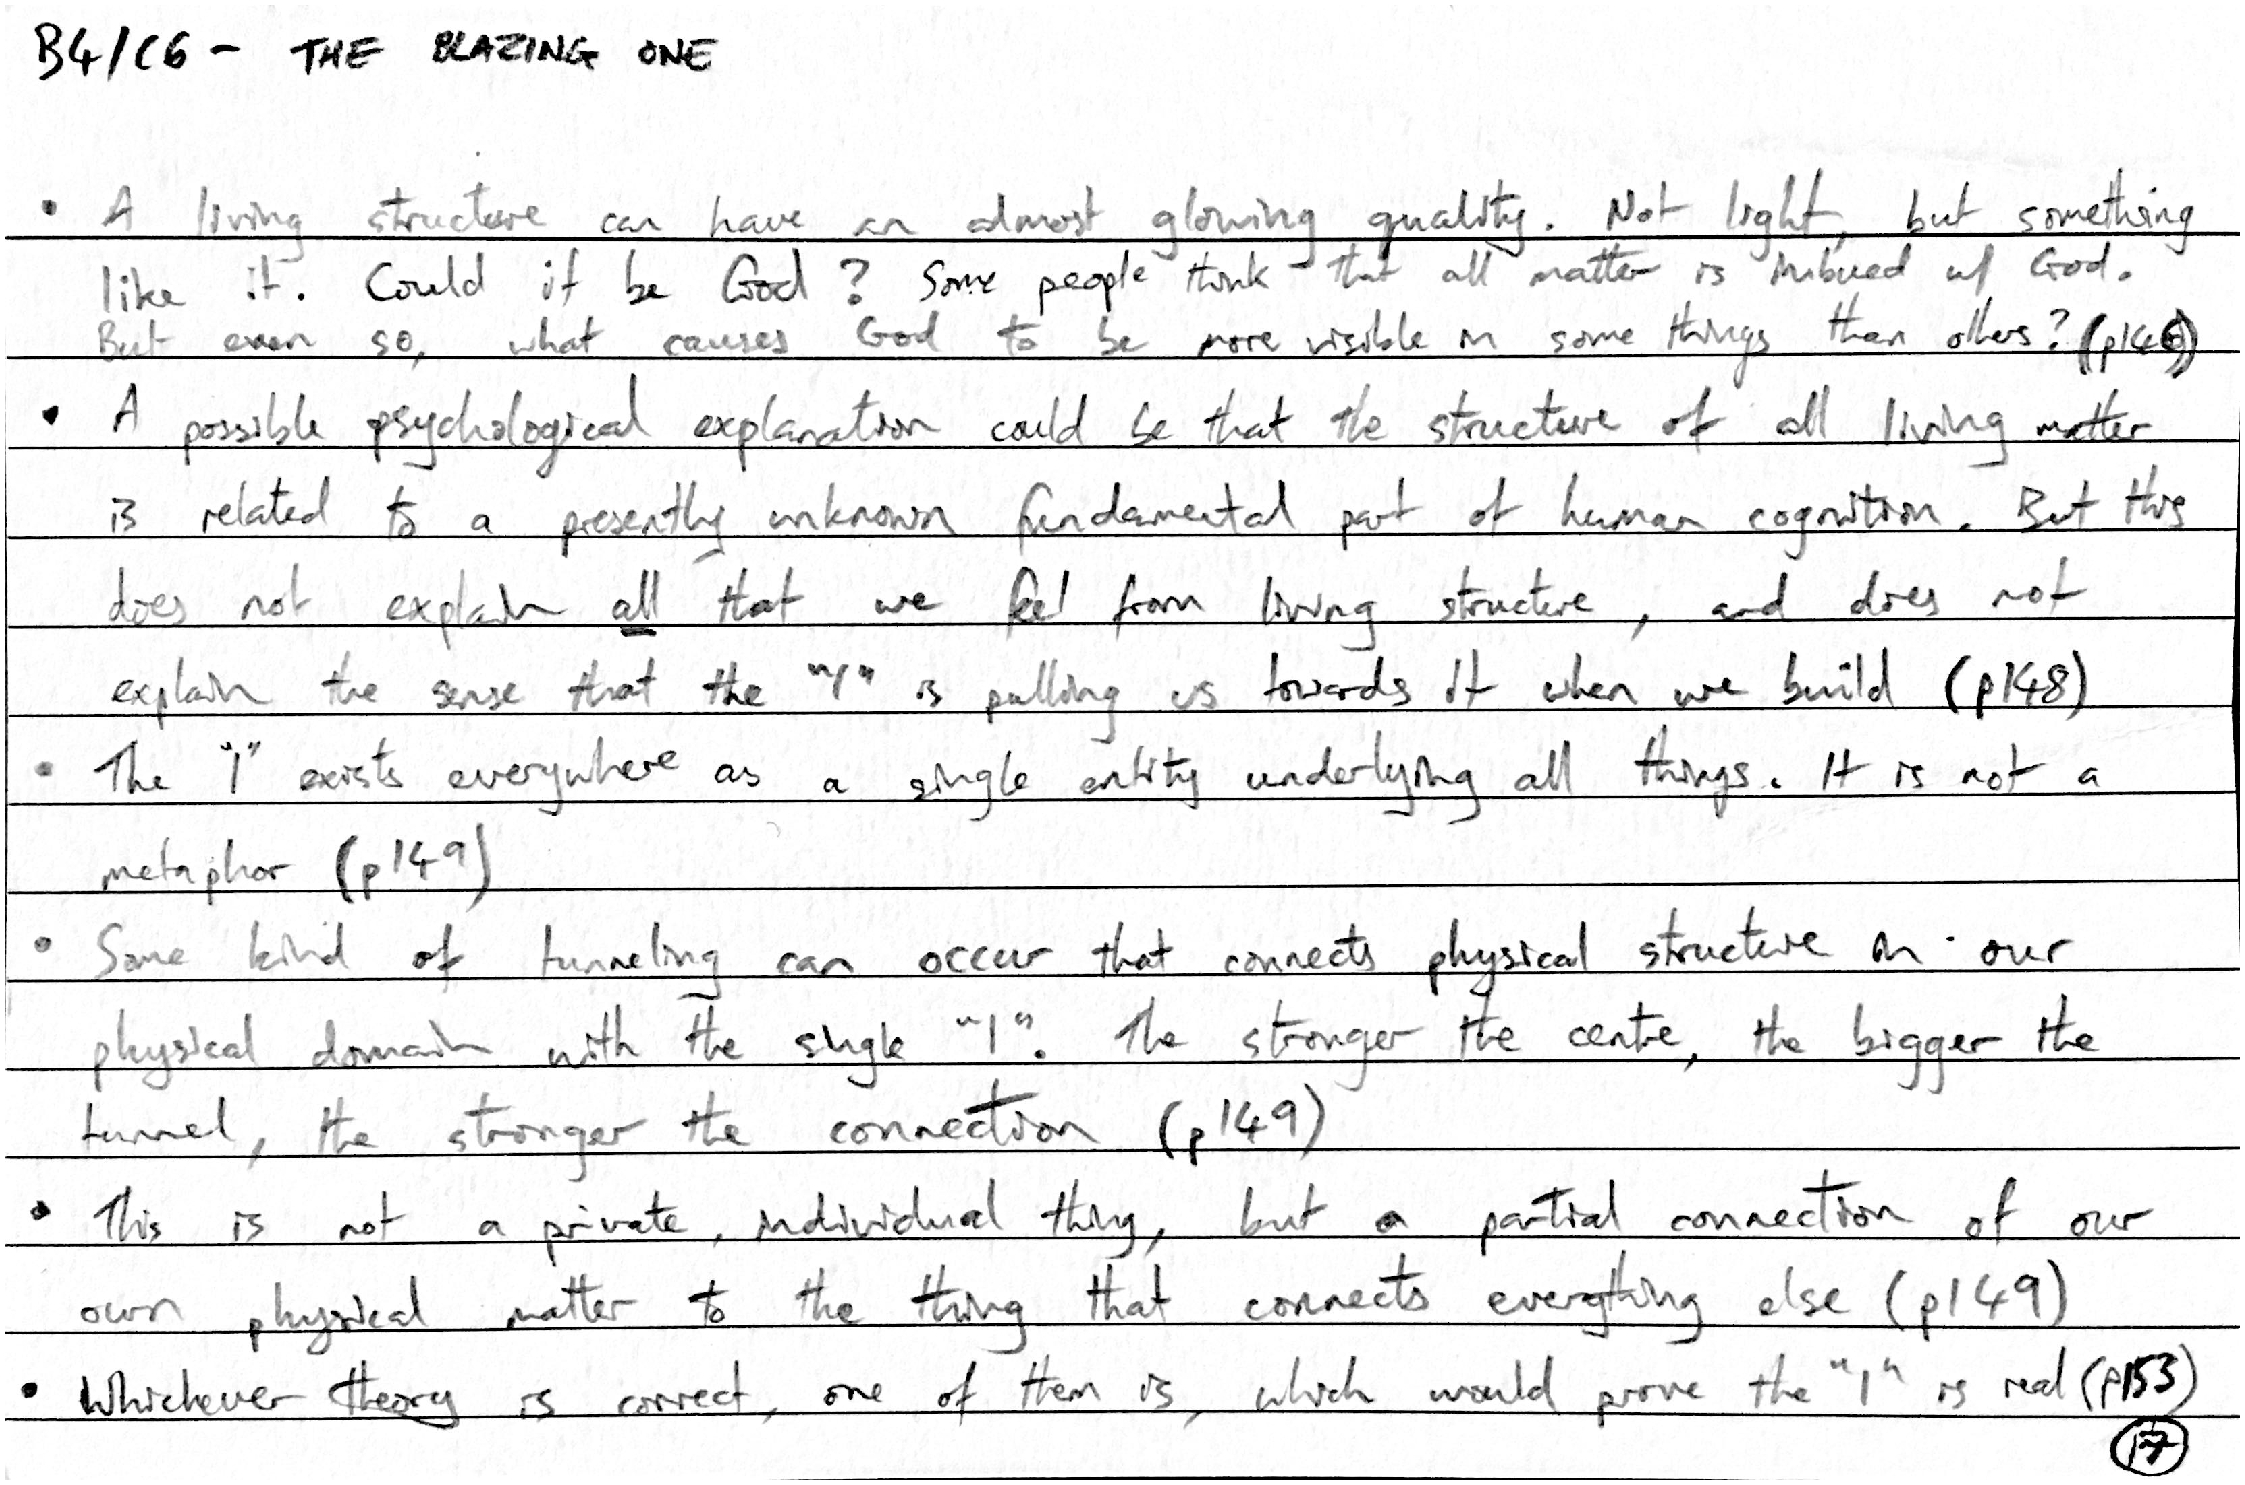 B4/C6 - THE BLAZING ONE
• A living structure can have an almost glowing quality. Not light, but something
like it. Could it be God? Some people think that all matter is imbued w/ God.
But even so, what causes God to be more visible in some things than others? (p146)
• A possible psychological explanation could be that the structure of all living matter
is related to a presently unknown fundamental part of human cognition. But this
does not explain all that we feel from living structure, and does not
explain the sense that the "I" is pulling us towards it when we build (p148)
• The "I" exists everywhere as a single entity underlying all things. It is not a
metaphor (p149)
• Some kind of tunneling can occur that connects physical structure in our
physical domain with the single "I". The stronger the centre, the bigger the
tunnel, the stronger the connection (p149)
• This is not a private, individual thing, but a partial connection of our
own physical matter to the thing that connects everything else (p149)
• Whichever theory is correct, one of them is, which would prove the "I" is real (p153)
17